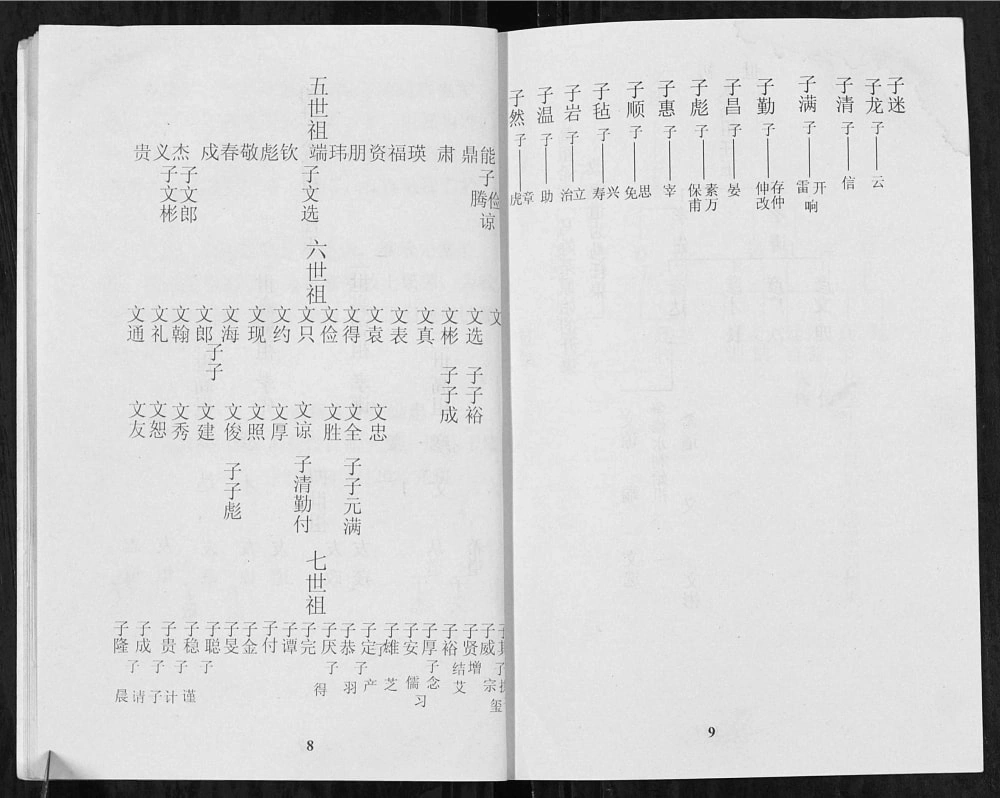 五世祖
贵 义 杰 戍 春 敬 彪 钦 端 玮 朋 资 福 瑛 肃 鼎 能
子文彬
子文郎
子文选
子腾
俭
谅
六世祖
文通 文礼 文翰 文郎 文海 文现 文约 文只 文俭 文得 文袁 文表 文真 文彬 文选 文
子子
子子成
子子裕
文友 文恕 文秀 文建 文俊 文照 文厚 文谅 文胜 文全 文忠
子子彪
子清勤付
子子元满
七世祖
子隆 子成 子贵 子稳 子聪 子旻 子金 子付 子谭 子完 子厌 子恭 子定 子雄 子安 子厚 子裕 子贤 子威
子 子 子 子 子 子 子 结 增 子
晨 请 子计 谨 得 羽 产 芝 儒 习 念 艾 宗 玺
8
子然 子温 子岩 子毡 子顺 子惠 子彪 子昌 子勤 子满 子清 子龙 子迷
子 子 子 子 子 子 子 子 子 子 子 子
虎章 助 治立 寿兴 免思 宰 保甫 素万 晏 伸改 存仲 雷 开 响 信 云
9